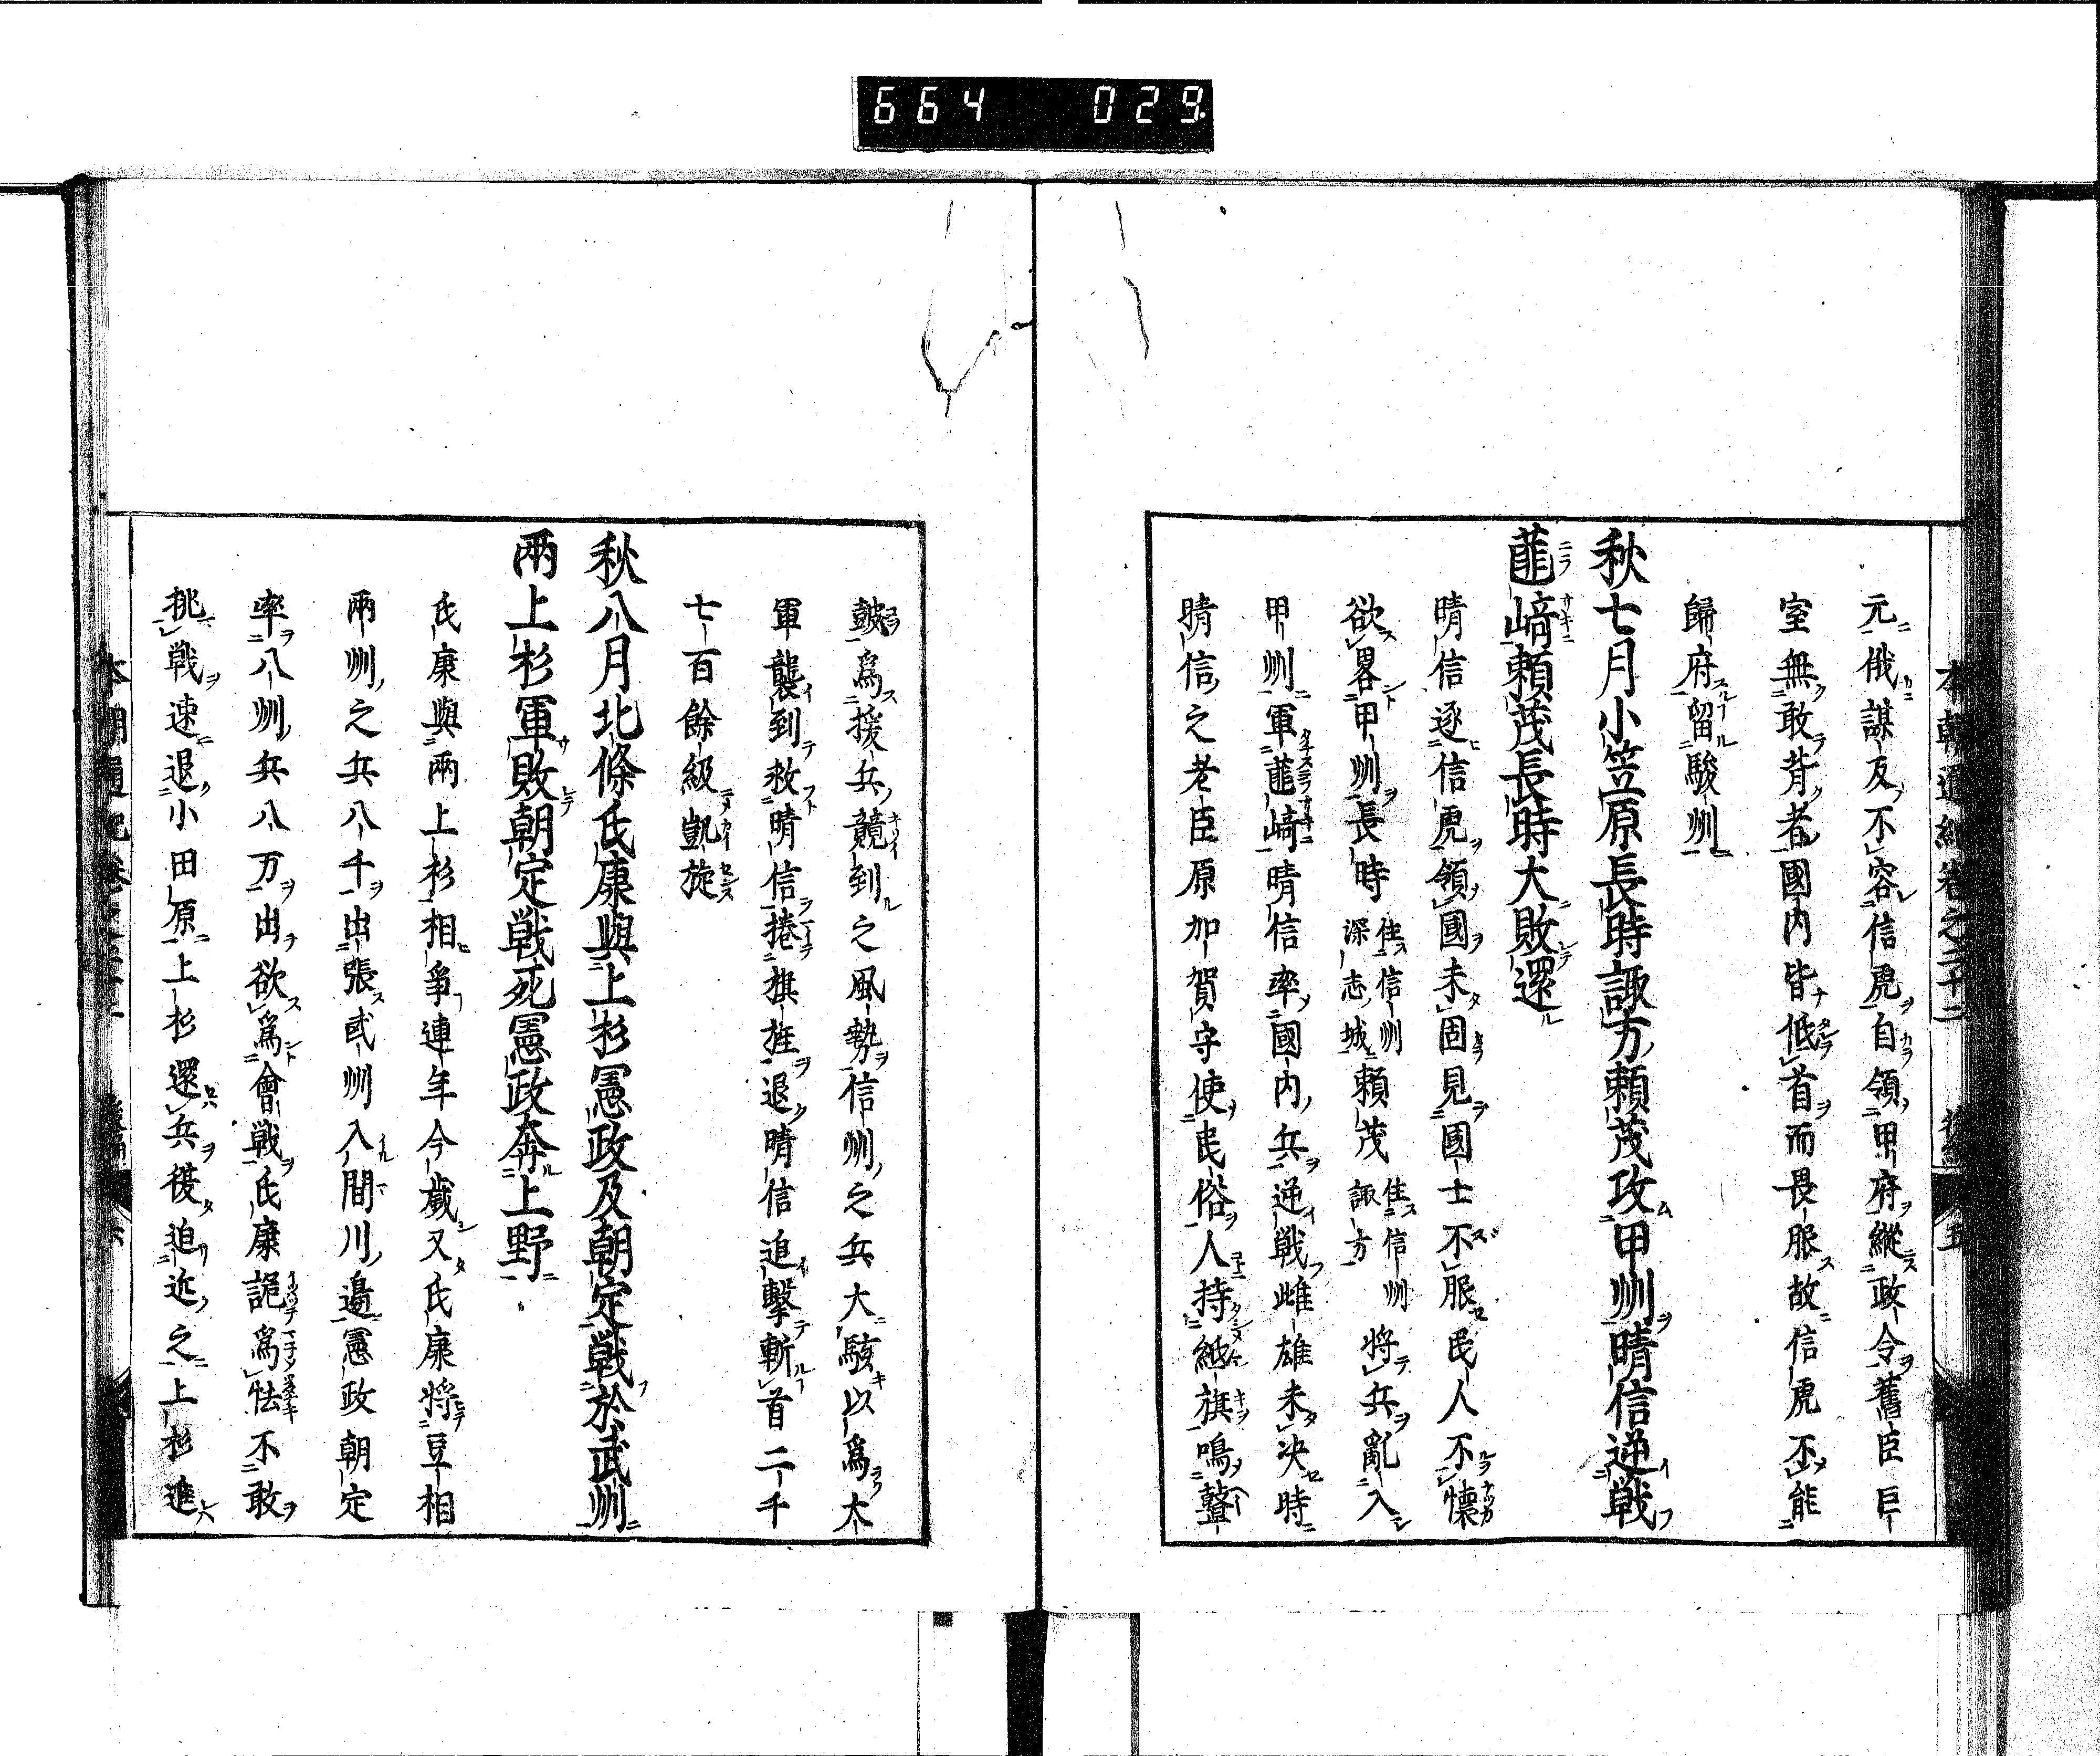 664 029
本朝通紀卷之二十二 後編 五
元俄謀反不容信虎自領甲府縱政令舊臣巨
室無敢背者國内皆低首而畏服故信虎不能
歸府留駿州
秋七月小笠原長時諏方頼茂攻甲州晴信逆戰
韮﨑頼茂長時大敗還
晴信逐信虎領國未固見國士不服民人不懷
欲畧甲州長時住信州深志城頼茂住信州諏方將兵亂入
甲州軍韮﨑晴信率國内兵逆戰雌雄未决時
晴信之老臣原加賀守使民俗人持紙旗鳴鼛
鼓爲援兵競到之風勢信州之兵大駭以爲大
軍襲到救晴信捲旗旌退晴信追擊斬首二千
七百餘級凱旋
秋八月北條氏康與上杉憲政及朝定戰於武州
兩上杉軍敗朝定戰死憲政奔上野
氏康與兩上杉相爭連年今歲又氏康將豆相
兩州之兵八千出張武州入間川邊憲政朝定
率八州兵八万出欲爲會戰氏康詭爲怯不敢
挑戰速退小田原上杉還兵復追近之上杉進
本朝通紀卷 後編 六